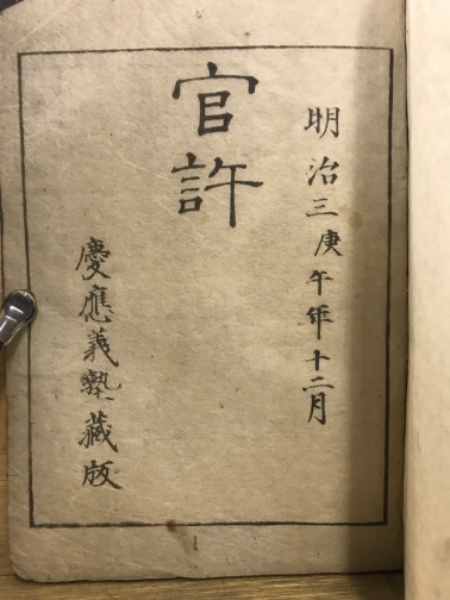 明治三庚午年十二月
官許
慶應義塾藏版